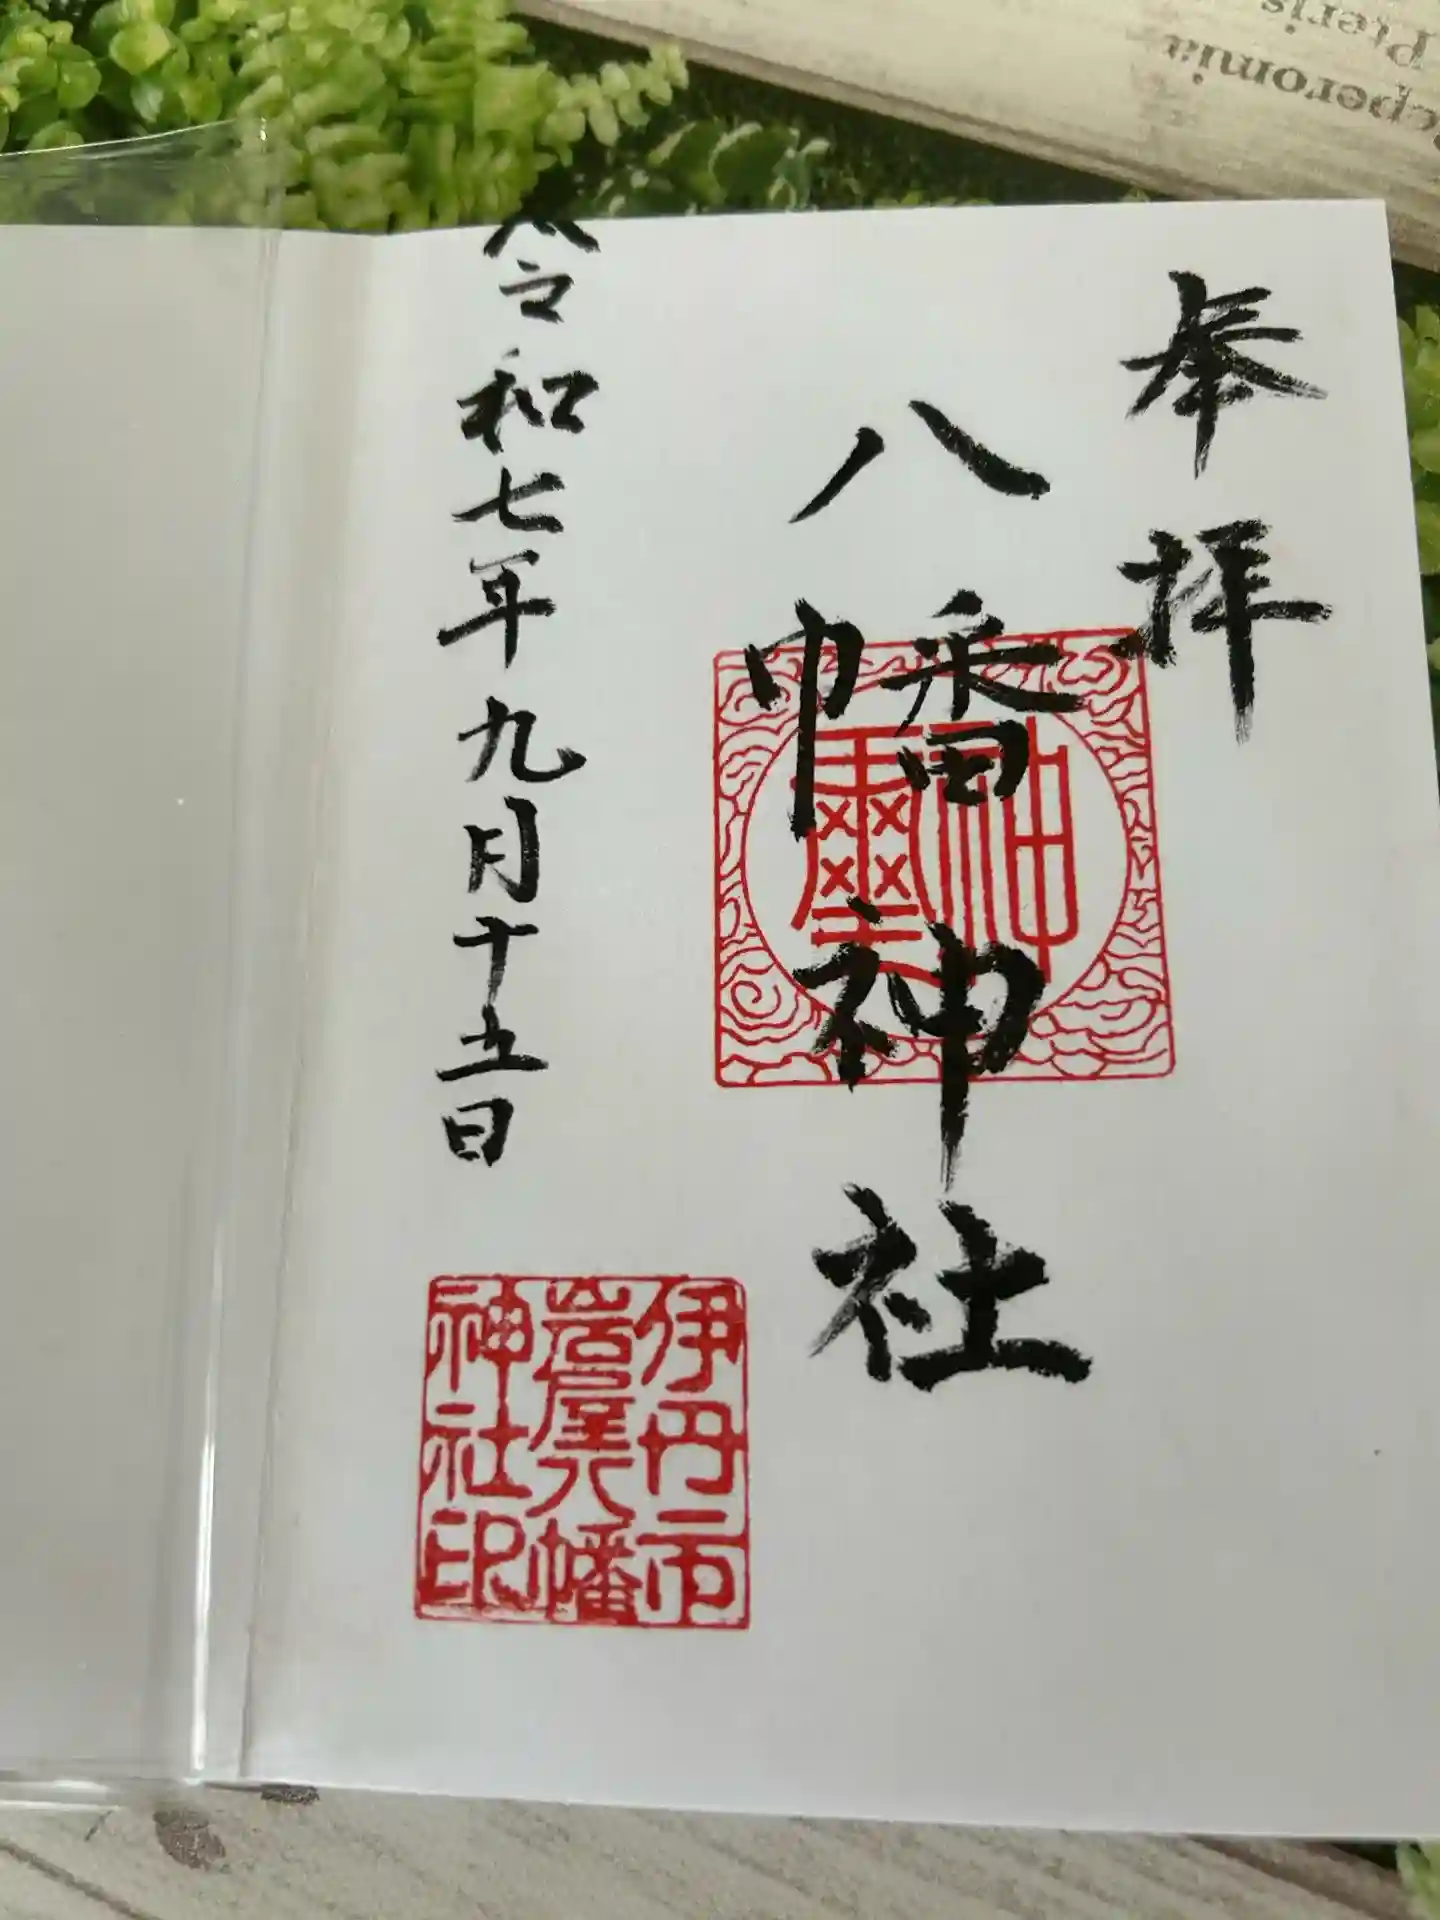 奉拝
八幡神社
令和七年九月十五日
神璽
伊丹市
岩屋八幡
神社印
Peperomia
Pteris